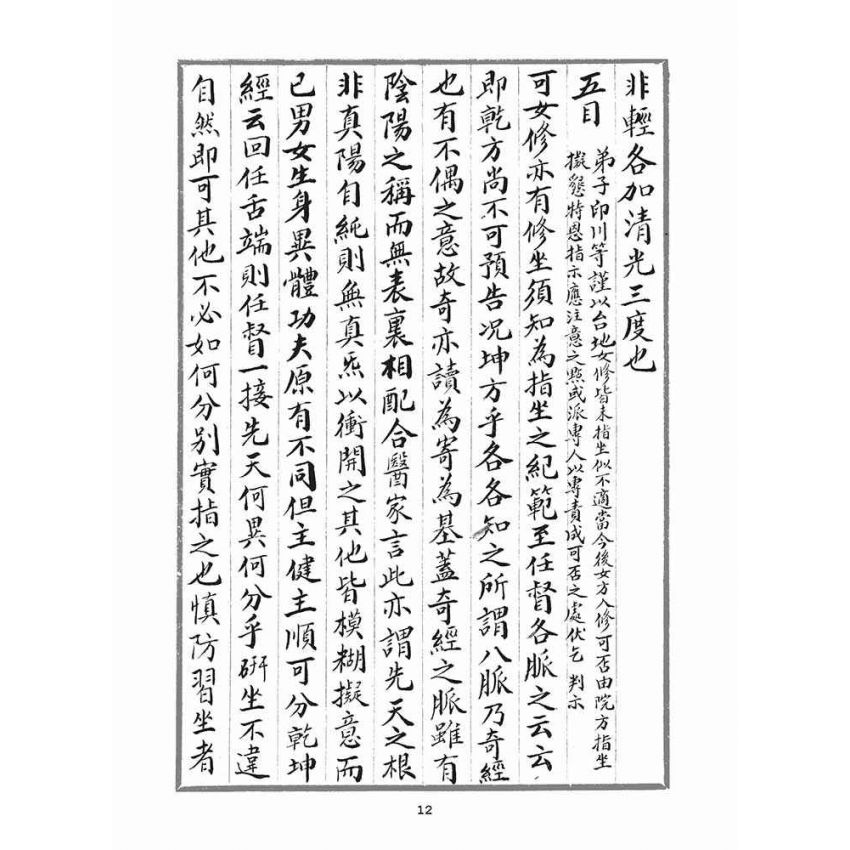 非輕各加清光三度也
五目
弟子印川等謹以台地女修皆未指坐似不適當今後女方入修可否由院方指坐
擬懇特恩指示應注意之點或派專人以專責成可否之處伏乞 判示
可女修亦有修坐須知為指坐之紀範至任督各脈之云云
即乾方尚不可預告况坤方乎各各知之所謂八脈乃奇經
也有不偶之意故奇亦讀為寄為基蓋奇經之脈雖有
陰陽之稱而無表裏相配合醫家言此亦謂先天之根
非真陽自純則無真炁以衝開之其他皆模糊擬意而
已男女生身異體功夫原有不同但主健主順可分乾坤
經云回任舌端則任督一接先天何異何分乎研坐不違
自然即可其他不必如何分別實指之也慎防習坐者
12